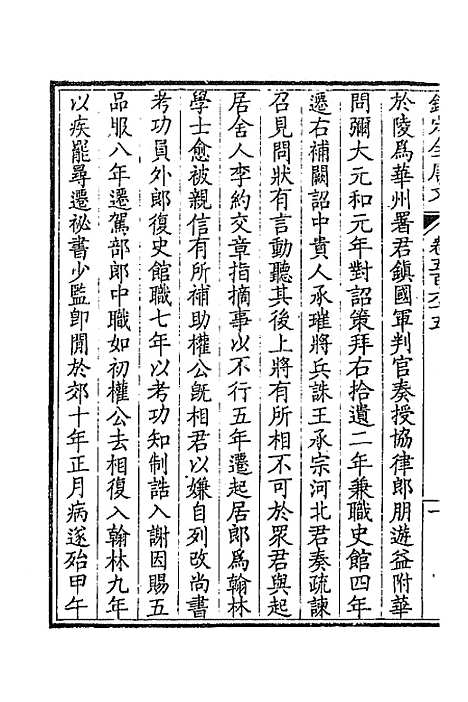 欽定全唐文
卷五百六十五
一
於陵爲華州署君鎭國軍判官奏授協律郎朋遊益附華
問彌大元和元年對詔策拜右拾遺二年兼職史館四年
遷右補闕詔中貴人承璀將兵誅王承宗河北君奏疏諫
召見問狀有言動聽其後上將有所相不可於眾君與起
居舍人李約交章指摘事以不行五年遷起居郎爲翰林
學士愈被親信有所補助權公旣相君以嫌自列改尚書
考功員外郎復史館職七年以考功知制誥入謝因賜五
品服八年遷駕部郎中職如初權公去相復入翰林九年
以疾罷尋遷祕書少監卽閒於郊十年正月病遂殆甲午